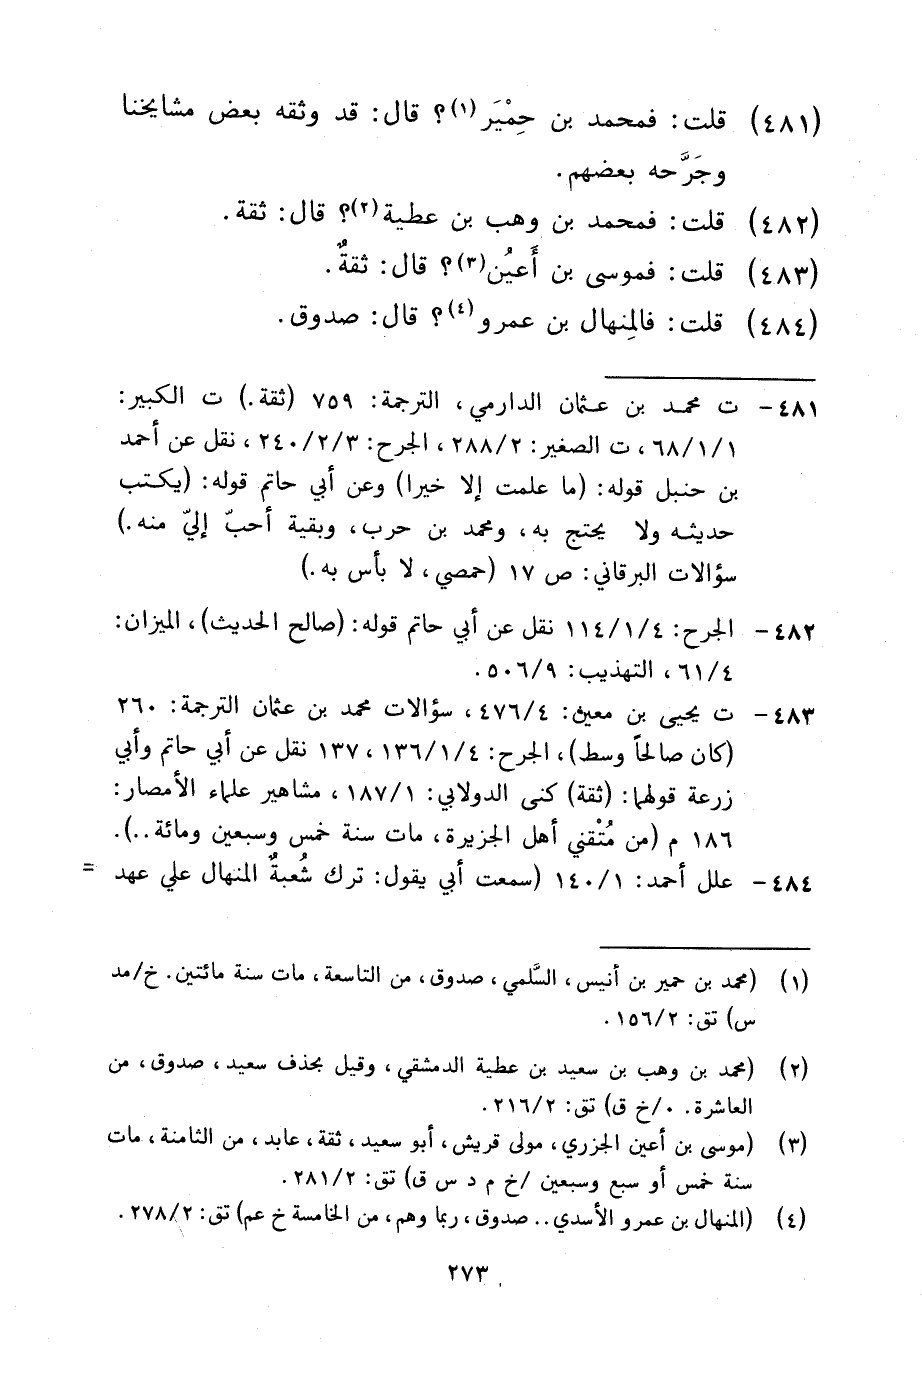 (٤٨١) قلت: فمحمد بن حِمْيَر(١)؟ قال: قد وثقه بعض مشايخنا
وجَرَّحه بعضهم.
(٤٨٢) قلت: فمحمد بن وهب بن عطية(٢)؟ قال: ثقة.
(٤٨٣) قلت: فموسى بن أَعيُن(٣)؟ قال: ثقةٌ.
(٤٨٤) قلت: فالمِنهال بن عمرو(٤)؟ قال: صدوق.
٤٨١- ت محمد بن عثمان الدارمي، الترجمة: ٧٥٩ (ثقة.) ت الكبير:
٦٨/١/١، ت الصغير: ٢٨٨/٢، الجرح: ٢٤٠/٢/٣، نقل عن أحمد
بن حنبل قوله: (ما علمت إلا خيرا) وعن أبي حاتم قوله: (يكتب
حديثه ولا يحتج به، ومحمد بن حرب، وبقية أحبّ إليّ منه.)
سؤالات البرقاني: ص ١٧ (حمصي، لا بأس به.)
٤٨٢- الجرح: ١١٤/١/٤ نقل عن أبي حاتم قوله: (صالح الحديث)، الميزان:
٦١/٤، التهذيب: ٥٠٦/٩.
٤٨٣- ت يحيى بن معين: ٤٧٦/٤، سؤالات محمد بن عثمان الترجمة: ٢٦٠
(كان صالحاً وسط)، الجرح: ١٣٦/١/٤، ١٣٧ نقل عن أبي حاتم وأبي
زرعة قولهما: (ثقة) كنى الدولابي: ١٨٧/١، مشاهير علماء الأمصار:
١٨٦ م (من مُتْقني أهل الجزيرة، مات سنة خمس وسبعين ومائة..).
٤٨٤- علل أحمد: ١٤٠/١ (سمعت أبي يقول: ترك شُعبةٌ المنهال علي عهد =
(١) (محمد بن حمير بن أنيس، السَّلمي، صدوق، من التاسعة، مات سنة مائتين. خ/مد
س) تق: ١٥٦/٢.
(٢) (محمد بن وهب بن سعيد بن عطية الدمشقي، وقيل بحذف سعيد، صدوق، من
العاشرة. ٠/خ ق) تق: ٢١٦/٢.
(٣) (موسى بن أعين الجزري، مولى قريش، أبو سعيد، ثقة، عابد، من الثامنة، مات
سنة خمس أو سبع وسبعين /خ م د س ق) تق: ٢٨١/٢.
(٤) (المنهال بن عمرو الأسدي.. صدوق، ربما وهم، من الخامسة خ عم) تق: ٢٧٨/٢.
٢٧٣